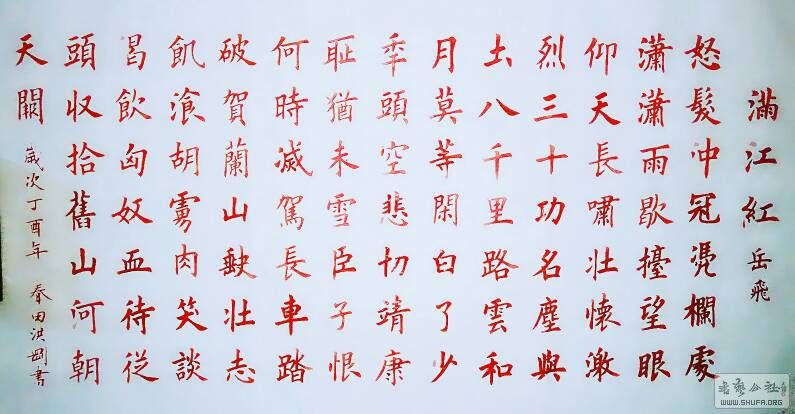 滿江紅 岳飛
怒髮沖冠凴欄處
瀟瀟雨歇擡望眼
仰天長嘯壯懷激
烈三十功名塵與
圡八千里路雲和
月莫等閑白了少
秊頭空悲切靖康
耻猶未雪臣子恨
何時滅駕長車踏
破賀蘭山缺壯志
飢湌胡虜肉笑談
曷飲匈奴血待從
頭収拾舊山河朝
天闕 歲次丁酉年 春田洪剛書
WWW.SHUFA.ORG